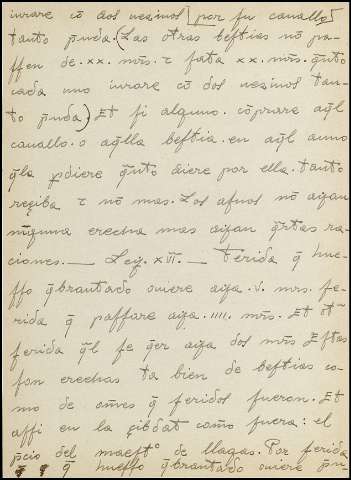 iurare cō dos uezinos [por su cauallo]
tanto p̄nda. (Las otras bestias nō pa-
ssen de .xx. mr̄s. τ fata xx. mr̄s. q̄nto
cada uno iurare cō dos uezinos tan-
to p̄nda.) Et si alguno. cōprare aq̄l
cauallo. o aq̄lla bestia. en aq̄l anno
q̄la pdiere q̄nto diere por ella. tanto
reçiba τ nō mas. Los asnos nō ayan
ninguna erecha mas ayan q̄rtas ra-
ciones.— Ley. xvii. — Ferida q̄ hue-
sso q̄brantado ouiere aya .v. mr̄s. fe-
rida q̄ passare aya. iiii. mr̄s. Et ot̄
ferida q̄l se q̄er aya dos mr̄s Estas
son erechas ta bien de bestias co-
mo de om̄es q̄ feridos fueron. Et
assi en la çibdat com̄o fuera: el
p̄cio del maest° de llagas. Por ferida
q̄ huesso q̄brantado ouiere p̄n-